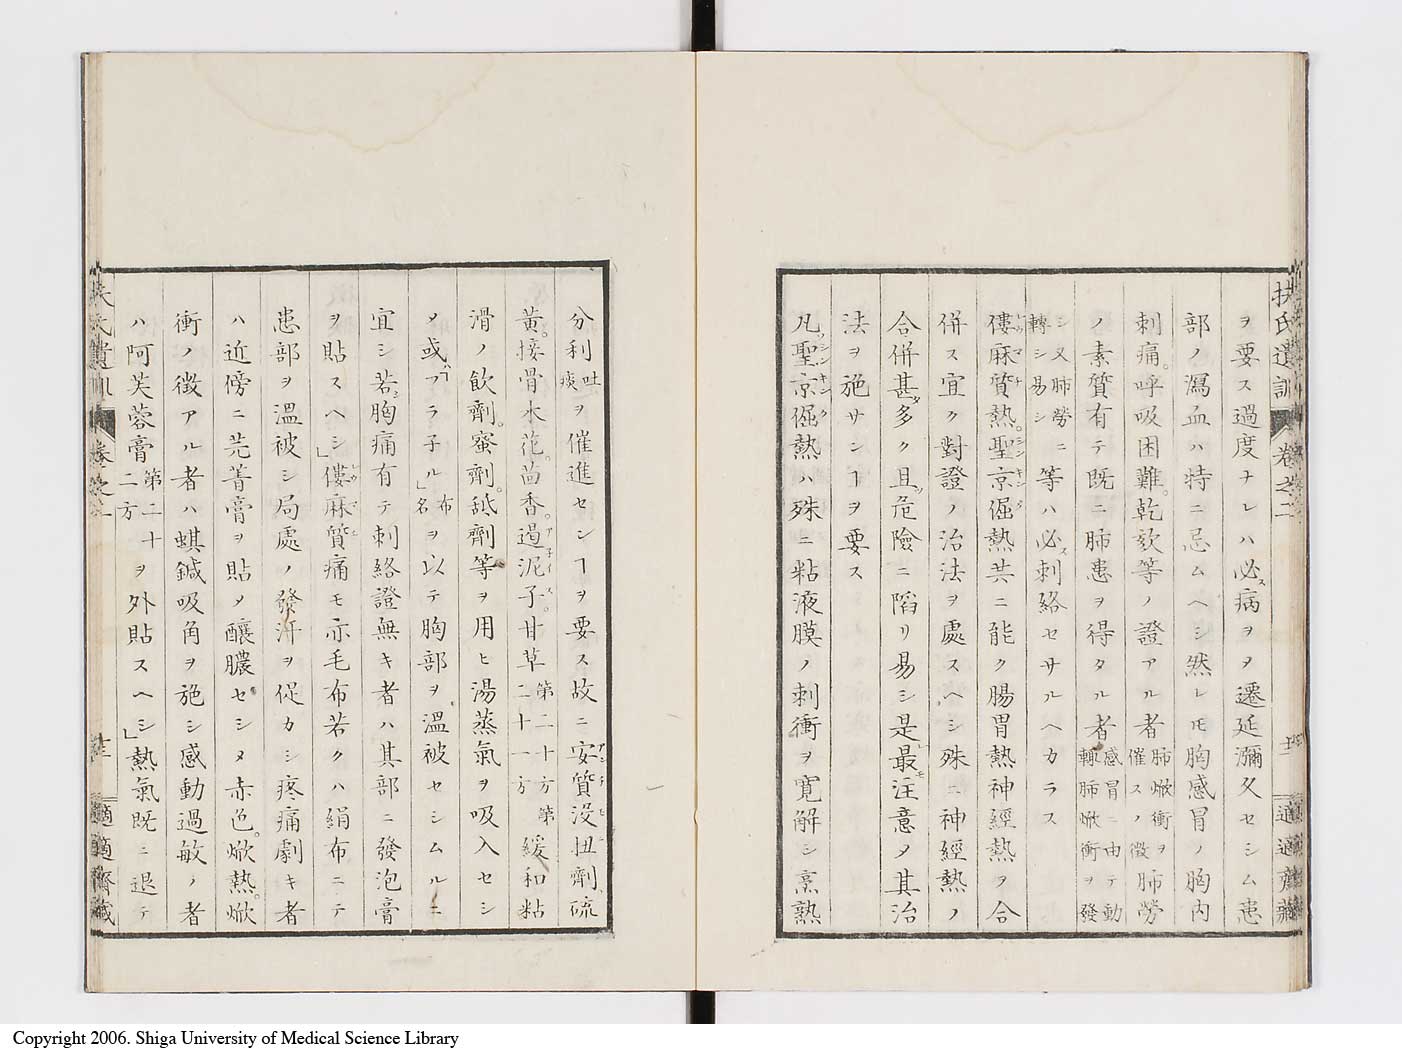 扶氏遺訓 卷之二 十二 適適齊藏
ヲ要ス過度ナレハ必ス病ヲヲ遷延瀰久セシム患
部ノ瀉血ハ特ニ忌ムヘシ然レ𪜈胸感冒ノ胸内
刺痛。呼吸困難。乾欬等ノ證アル者肺焮衝ヲ催スノ徴肺勞
ノ素質有テ既ニ肺患ヲ得タル者感冒ニ由テ動輒肺焮衝ヲ發
シ又肺勞ニ轉シ易シ等ハ必ス刺絡セサルヘカラス
僂麻質熱。聖京倔熱共ニ能ク腸胃熱神經熱ヲ合
併ス宜ク對證ノ治法ヲ處スヘシ殊ニ神經熱ノ
合併甚タ多ク且ツ危險ニ陷リ易シ是レ最モ注意〆其治
法ヲ施サンヿヲ要ス
凡聖京倔熱ハ殊ニ粘液膜ノ刺衝ヲ寛解シ烹熟
分利吐痰ヲ催進センヿヲ要ス故ニ安質没扭劑硫
黄。接骨木花。茴香。過泥子。甘草第二十方第二十一方緩和粘
滑ノ飲劑。蜜劑。舐劑等ヲ用ヒ湯蒸氣ヲ吸入セシ
メ或ハ「フラ子ル」布名ヲ以テ胸部ヲ温被セシムルニ
宜シ若シ胸痛有テ刺絡證無キ者ハ其部ニ發泡膏
ヲ貼スヘシ」僂麻質痛モ亦毛布若クハ絹布ニテ
患部ヲ温被シ局處ノ發汗ヲ促カシ疼痛劇キ者
ハ近傍ニ芫菁膏ヲ貼〆釀膿セシメ赤色。焮熱。焮
衝ノ徴アル者ハ蜞鍼吸角ヲ施シ感動過敏ノ者
ハ阿芙蓉膏第二十二方ヲ外貼スヘシ」熱氣既ニ退テ
扶氏遺訓 卷之二 適適齊藏
Copyright 2006. Shiga University of Medical Science Library